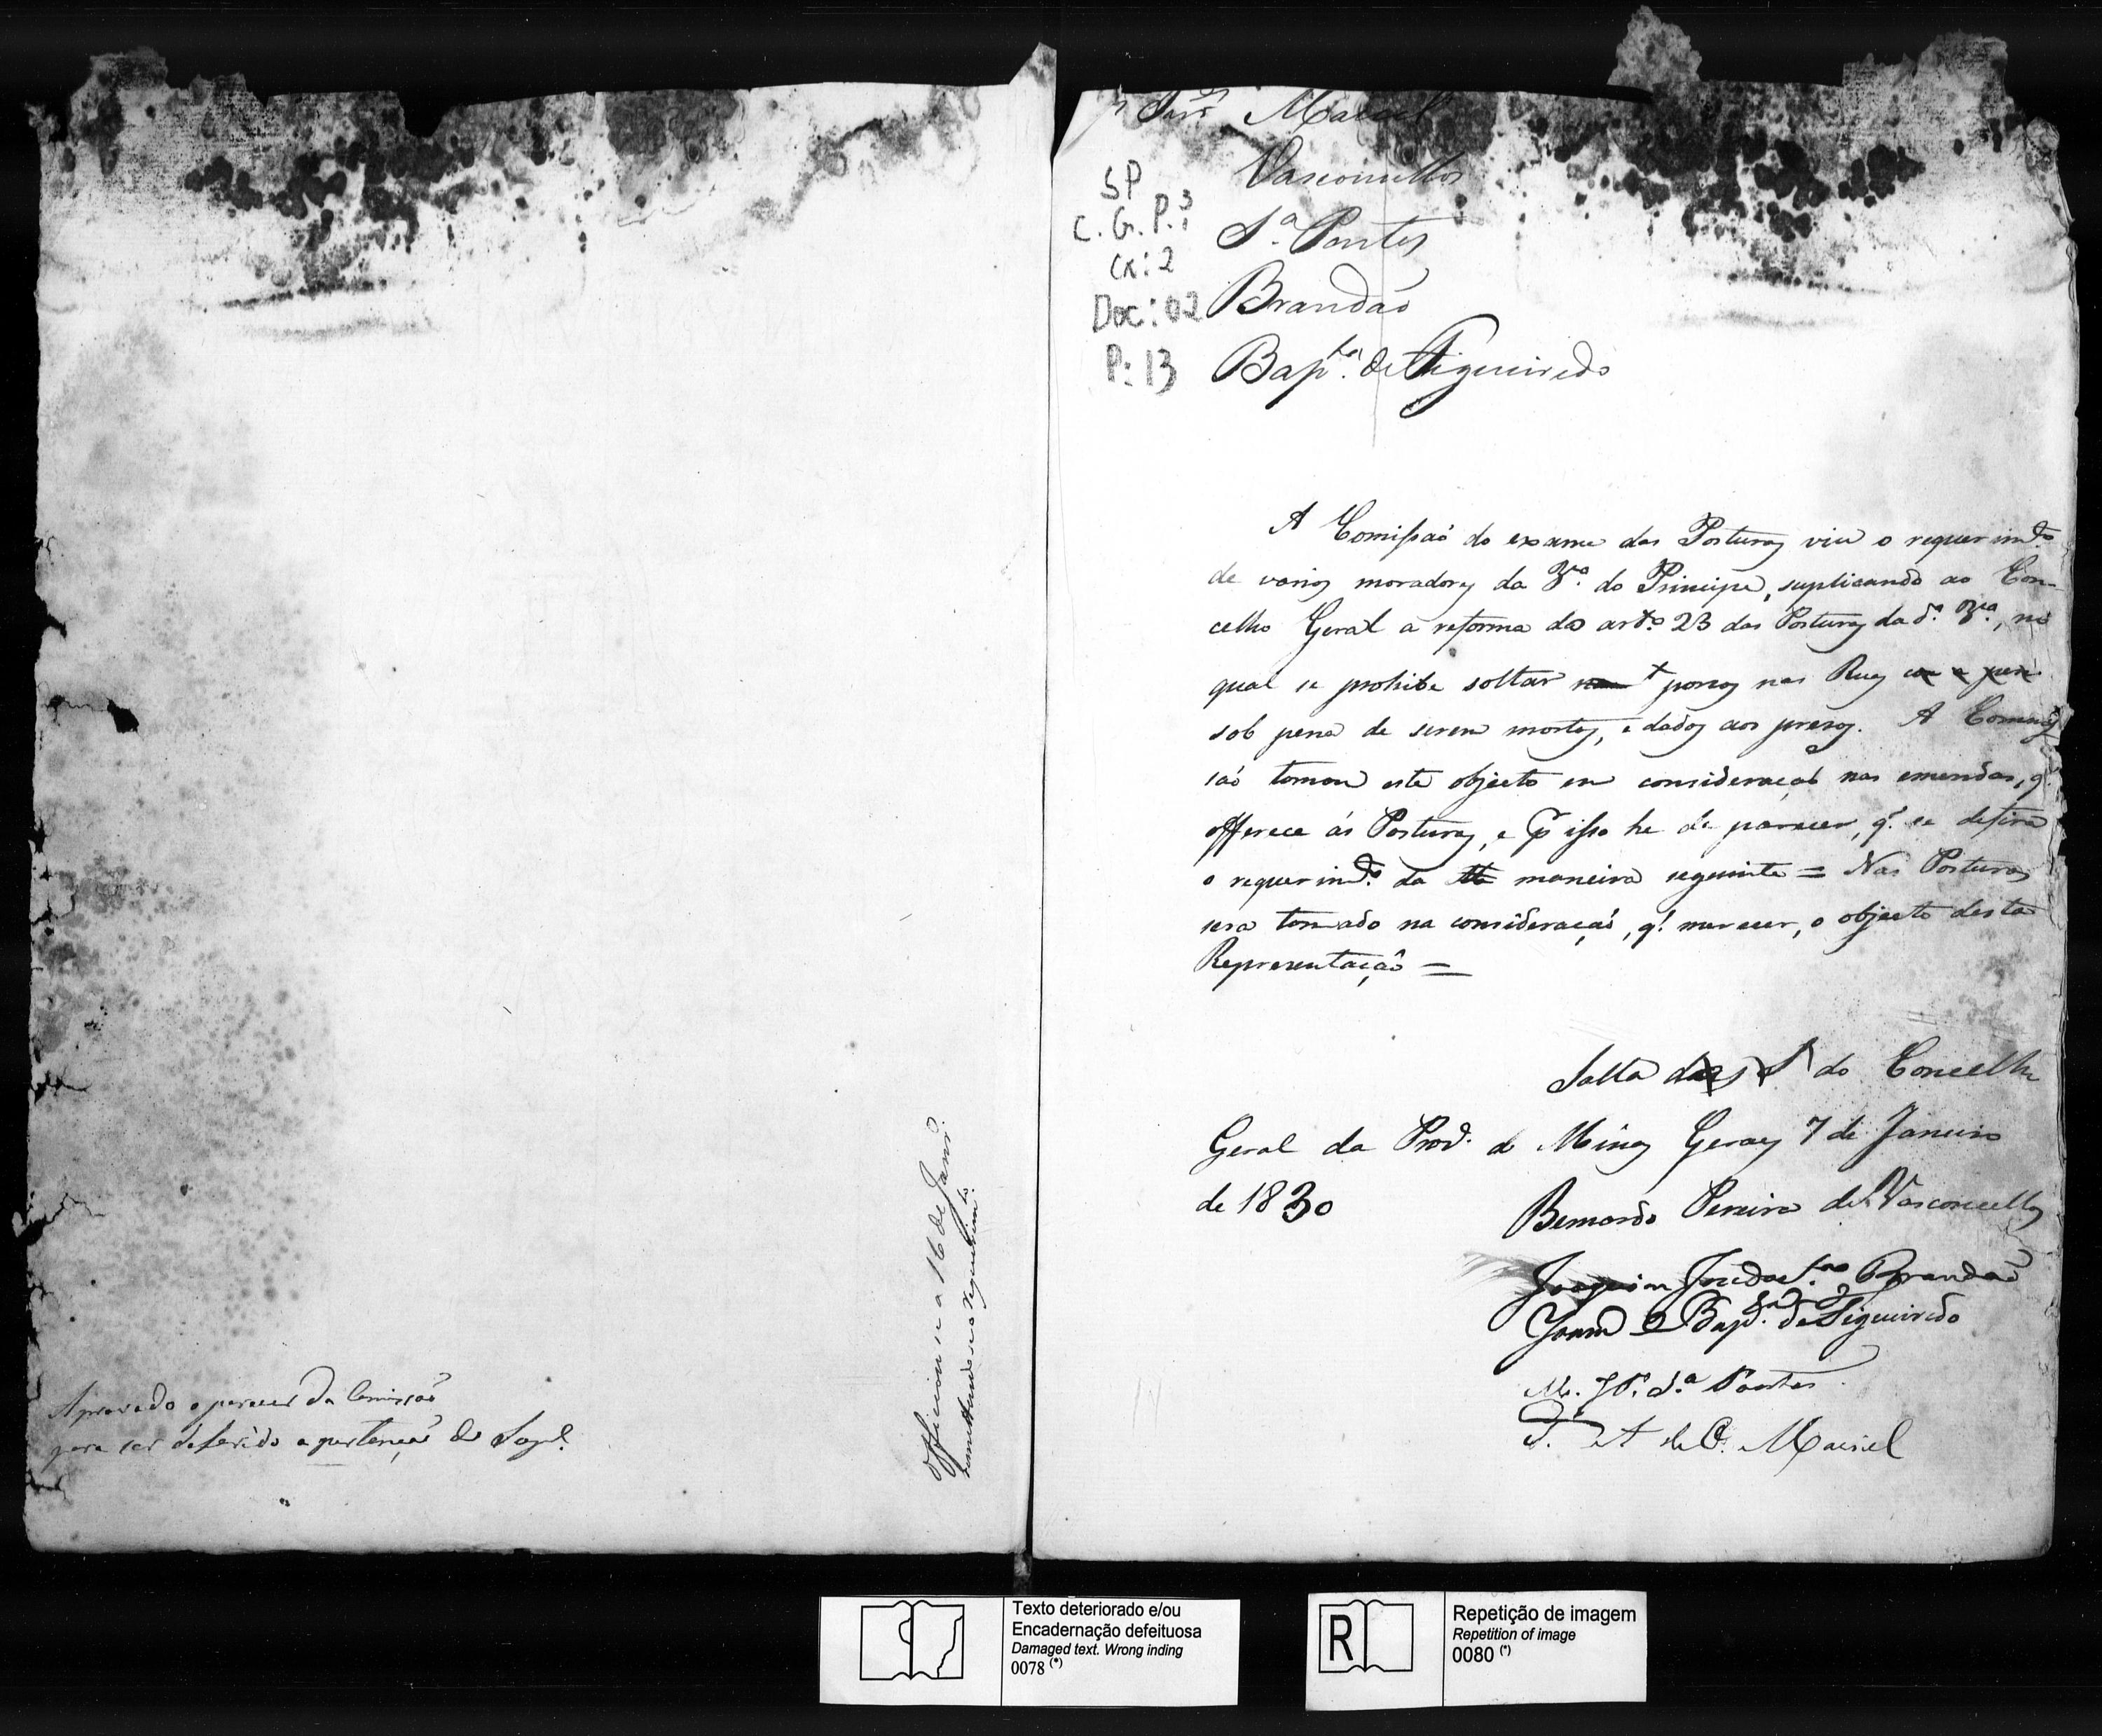 Aprovado o parecer da Comissaõ
para ser deferido a pertençaõ do Supl.
Officiou-se a 16 de Janrº.
remettendo-se o requerimto.
Maciel
Vasconcellos
Sª. Pontes
Brandaõ
Bapta. de Figueiredo
SP
C. G. P. 3
cx: 2
Doc: 02
P: 13
A Comissaõ do exame das Posturas viu o requerimto.
de varios moradores da Vª. do Principe, suplicando ao Con-
celho Geral a reforma do artº. 23 das Posturas da dª. Vª., no
qual se prohibe soltar porcos nas Ruas
sob pena de serem mortos, e dados aos presos. A Comis-
saõ tomou este objecto em consideraçaõ nas emendas, q.
offerece ás Posturas, e pr isso he de parecer, q. se defira
o requerimto. da maneira seguinte = Nas Posturas
sera tomado na consideraçaõ, q. merecer, o objecto desta
Representaçaõ =
Salla do Concelho
Geral da Prov. de Minas Geraes 7 de Janeiro
de 1830
Bernardo Pereira de Vasconcellos
Joaquim Jose dos Stos Brandaõ
Bapta. de Figueiredo
M. J. P. Sª. Pontes
T. A de O. Maciel
Texto deteriorado e/ou
Encadernação defeituosa
Damaged text. Wrong inding
0078 (*)
R
Repetição de imagem
Repetition of image
0080 (*)